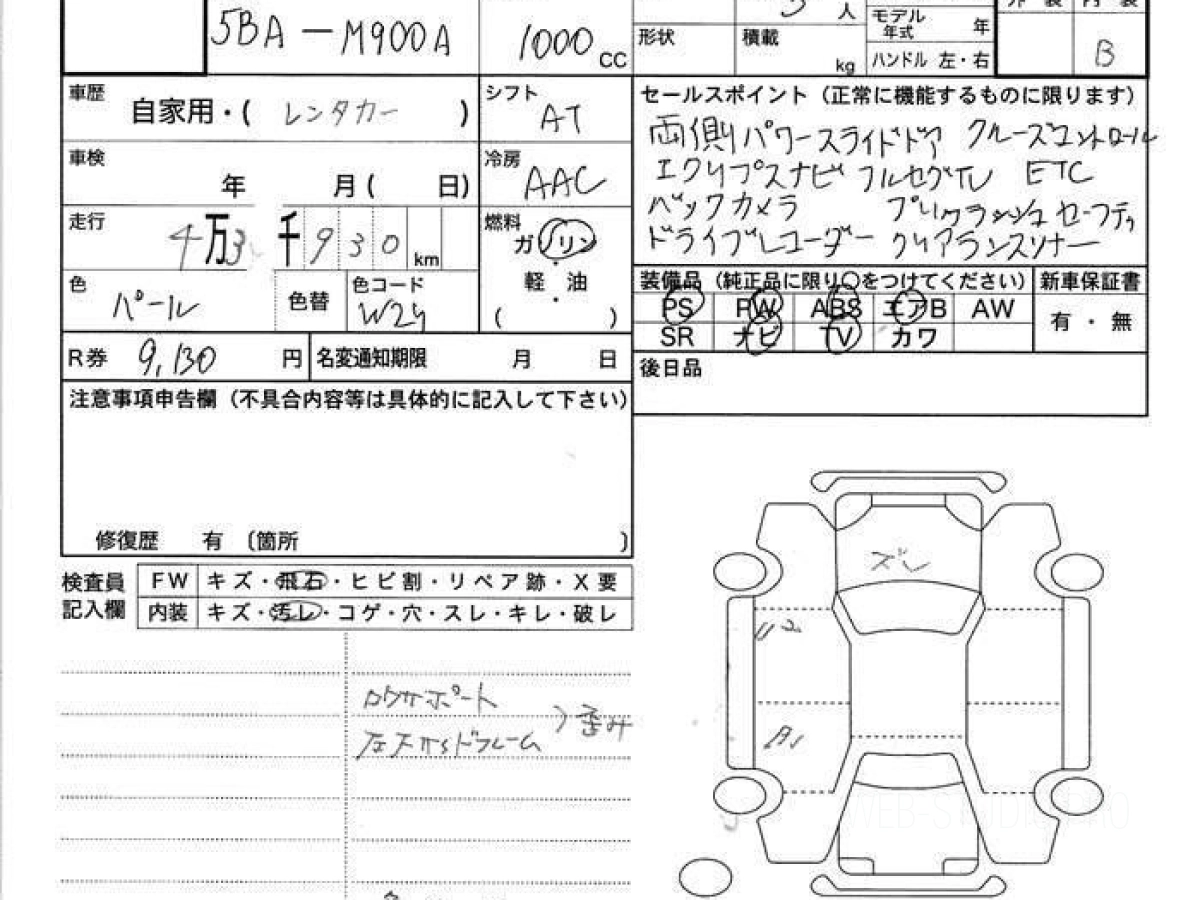 5 人
モデル年式 年
外装 内装
5BA-M900A 1000 cc
形状 積載 kg
ハンドル 左・右
B
車歴 自家用・( レンタカー )
シフト AT
セールスポイント（正常に機能するものに限ります）
両側パワースライドドア クルーズコントロール
エクリプスナビ フルセグTV ETC
バックカメラ プリクラッシュセーフティ
ドライブレコーダー クリアランスソナー
車検 年 月( 日)
冷房 AAC
走行 4万3千930km
燃料 ガソリン・軽・油・( )
色 パール
色替
色コード W24
装備品（純正品に限り○をつけてください） 新車保証書
PS PW ABS エアB AW 有・無
SR ナビ TV カワ
R券 9,130 円 名変通知期限 月 日
後日品
注意事項申告欄（不具合内容等は具体的に記入して下さい）
修復歴 有 〔箇所 〕
検査員記入欄
FW キズ・飛石・ヒビ割・リペア跡・X要
内装 キズ・汚レ・コゲ・穴・スレ・キレ・破レ
ズレ
歪み
WEB-STUDIO.PRO